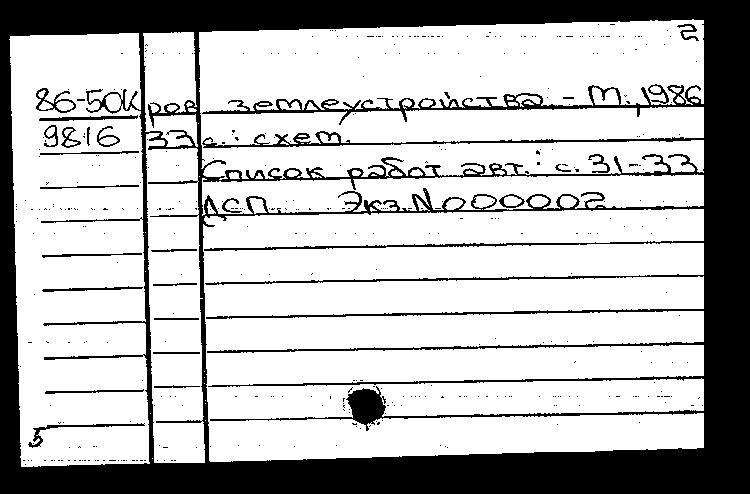 2
86-50К ров землеустройства. - М., 1986
9816 33 с.: схем.
Список работ авт.: с. 31-33
ДСП. Экз. N000002
5